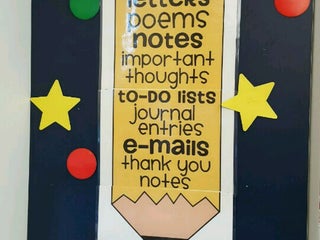 letters
poems
notes
important
thoughts
to-do lists
journal
entries
e-mails
thank you
notes